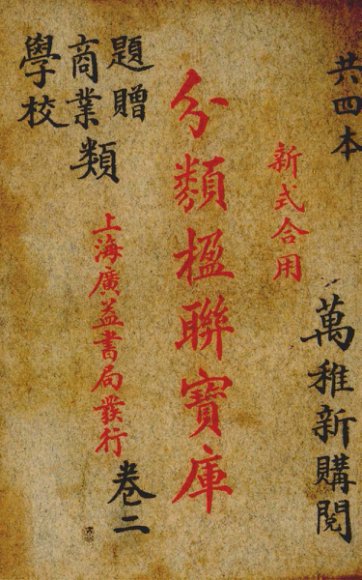 共四本
萬稚新購閱
新式合用
分類楹聯寶庫
上海廣益書局發行
題贈
商業類
學校
卷二